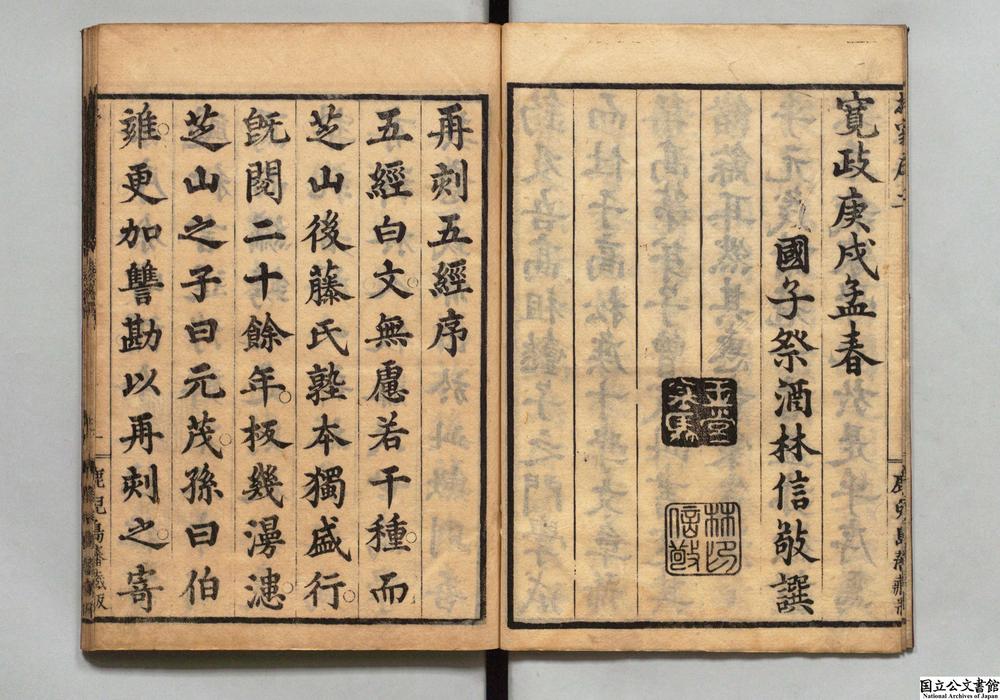 寬政庚戌孟春
國子祭酒林信敬譔
林印信敬
再刻五經序
五經白文。無慮若干種。而
芝山後藤氏塾本獨盛行。
既閱二十餘年。板幾漫漶。
芝山之子曰元茂。孫曰伯
雍。更加讐勘以再刻之。寄
鹿兒島藩藏板
国立公文書館
National Archives of Japan